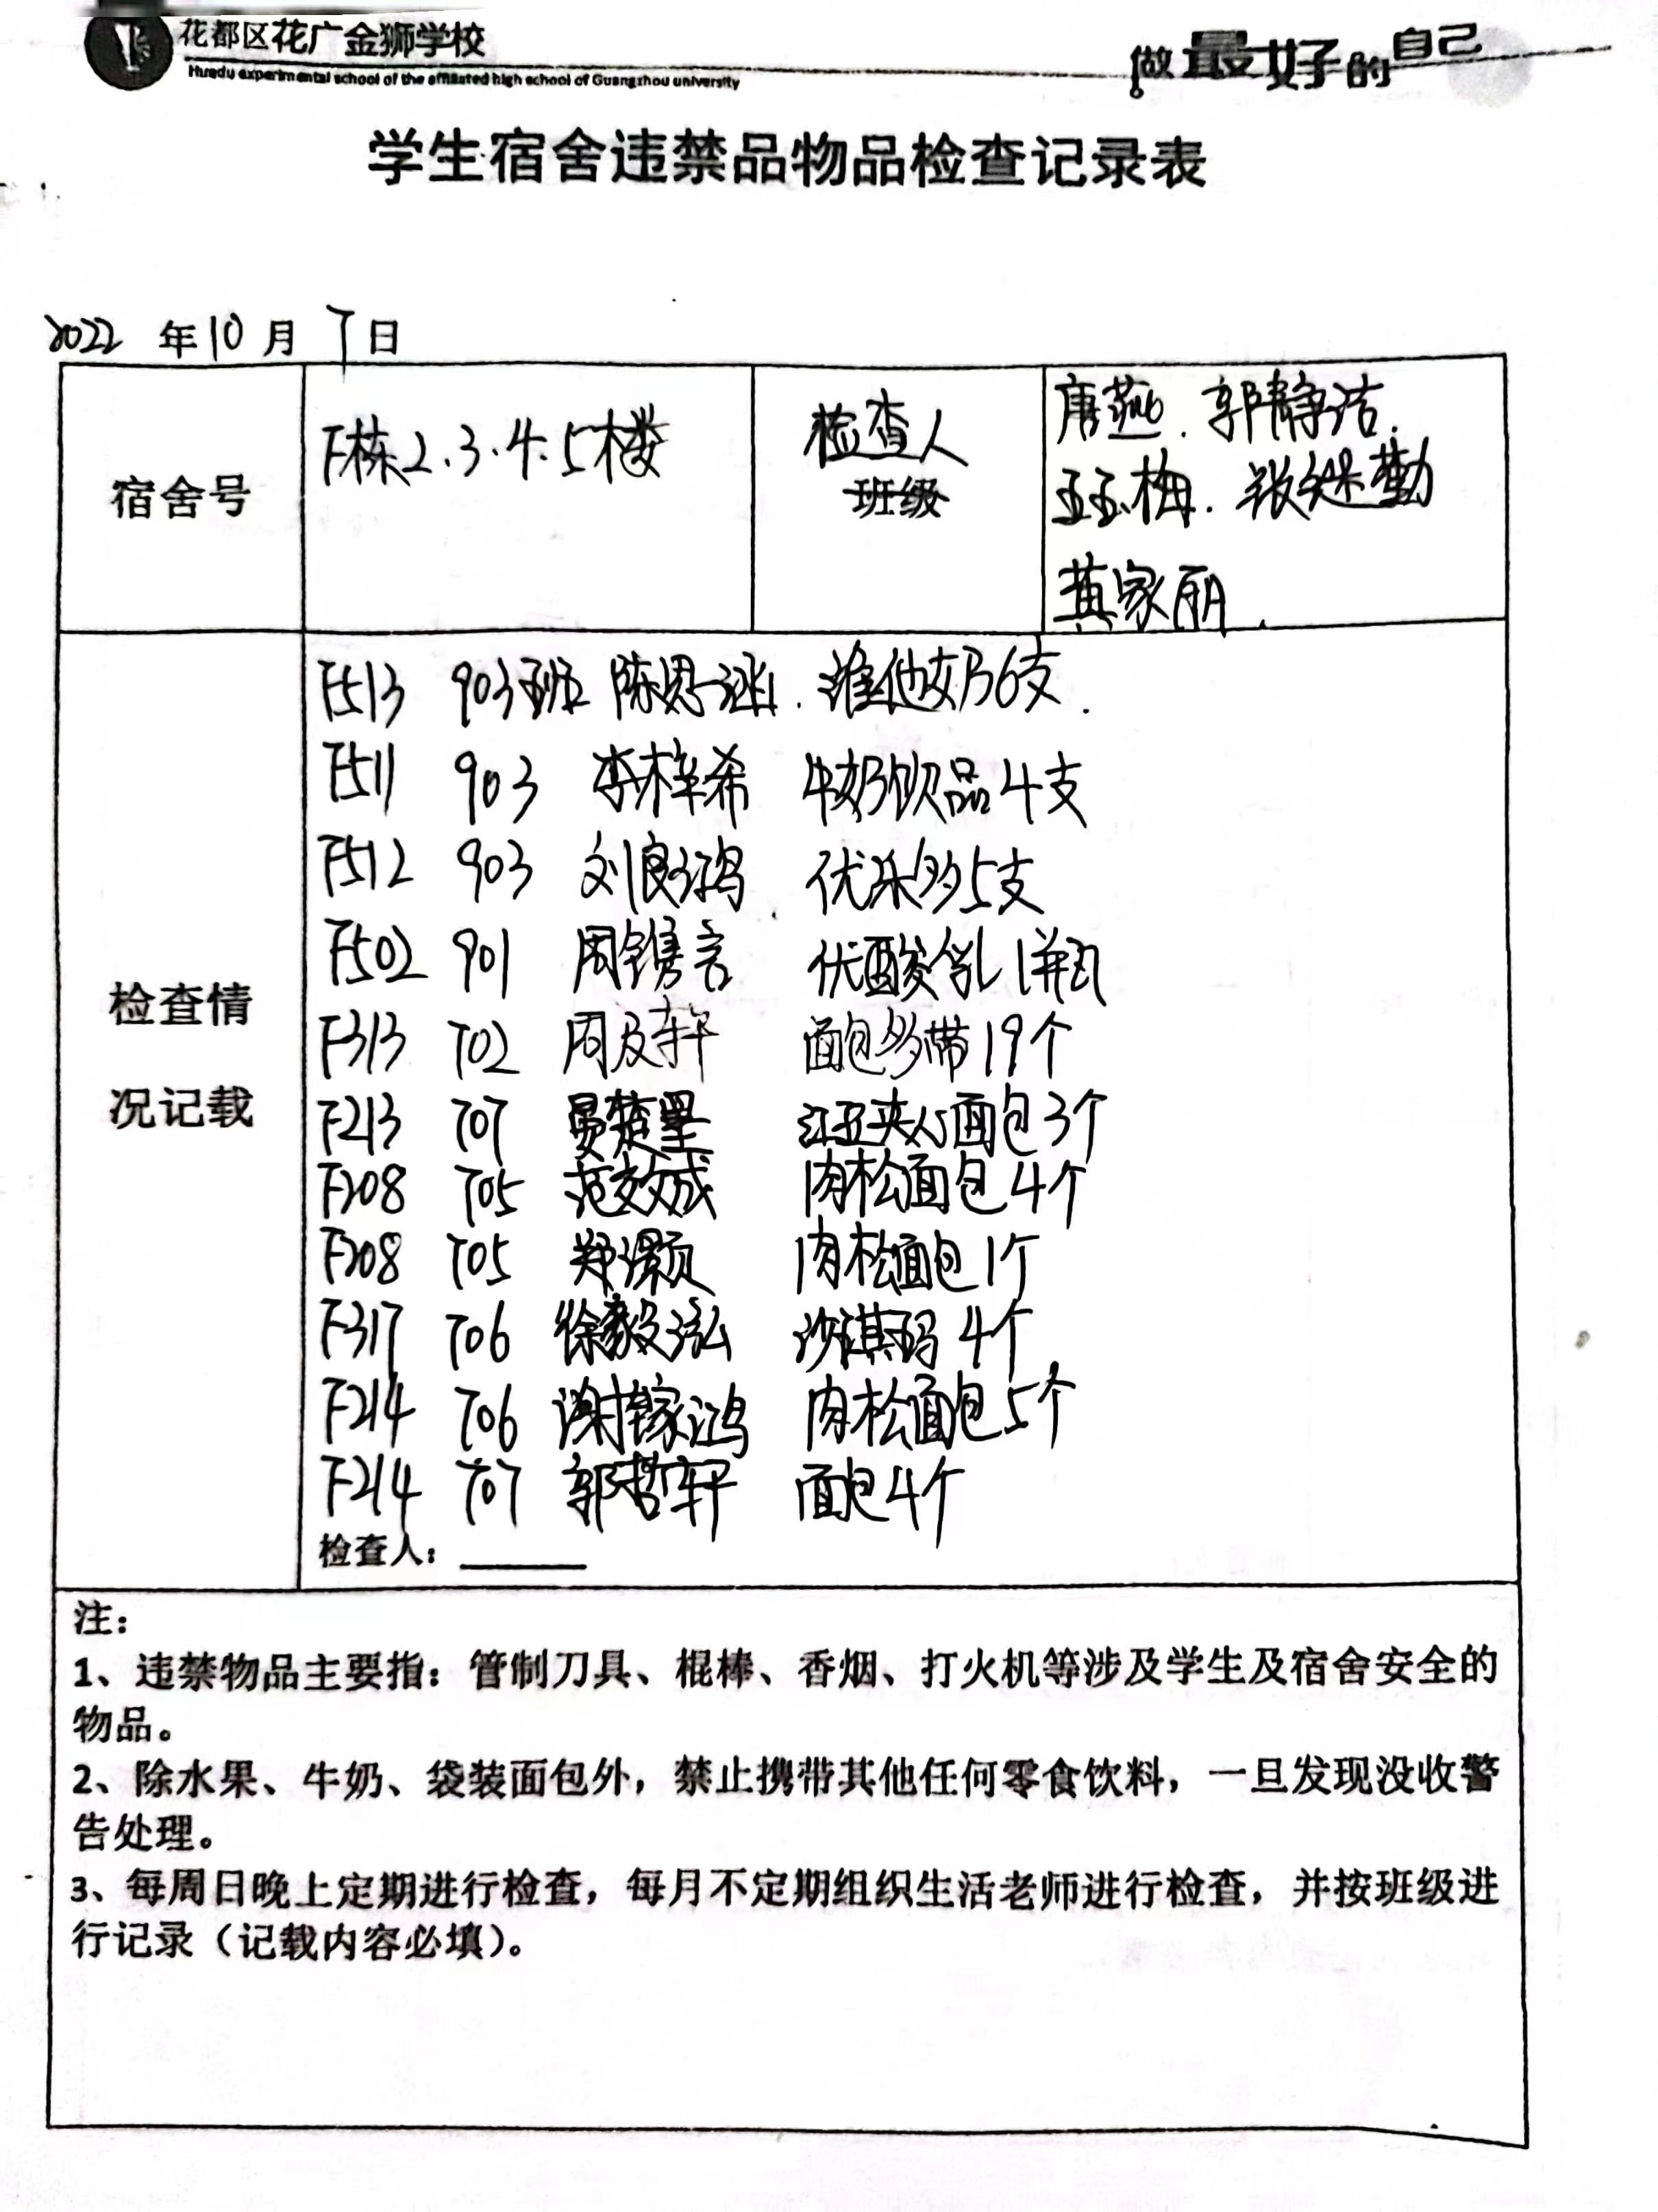 花都区花广金狮学校
Huadu experimental school of the affiliated high school of Guangzhou university
做最好的自己
学生宿舍违禁品物品检查记录表
2022 年 10 月 7 日
宿舍号
F栋2.3.4.5楼
检查人
班级
唐燕.郭静洁.
王玉梅.张继勤
黄家丽.
检查情
况记载
F513 903班 陈思涵.维他奶6支.
F511 903 李梓希 牛奶饮品4支
F512 903 刘良鸿 优乐多5支
F502 901 周镌言 优酸乳1瓶
F313 702 周及轩 面包多带19个
F213 707 晏楚墨 红豆夹心面包3个
F208 705 范文成 肉松面包4个
F208 705 郑灏 肉松面包1个
F317 706 徐毅泓 沙琪玛4个
F214 706 谢稼鸿 肉松面包5个
F214 707 郭哲轩 面包4个
检查人:
注:
1、违禁物品主要指:管制刀具、棍棒、香烟、打火机等涉及学生及宿舍安全的
物品。
2、除水果、牛奶、袋装面包外,禁止携带其他任何零食饮料,一旦发现没收警
告处理。
3、每周日晚上定期进行检查,每月不定期组织生活老师进行检查,并按班级进
行记录(记载内容必填)。